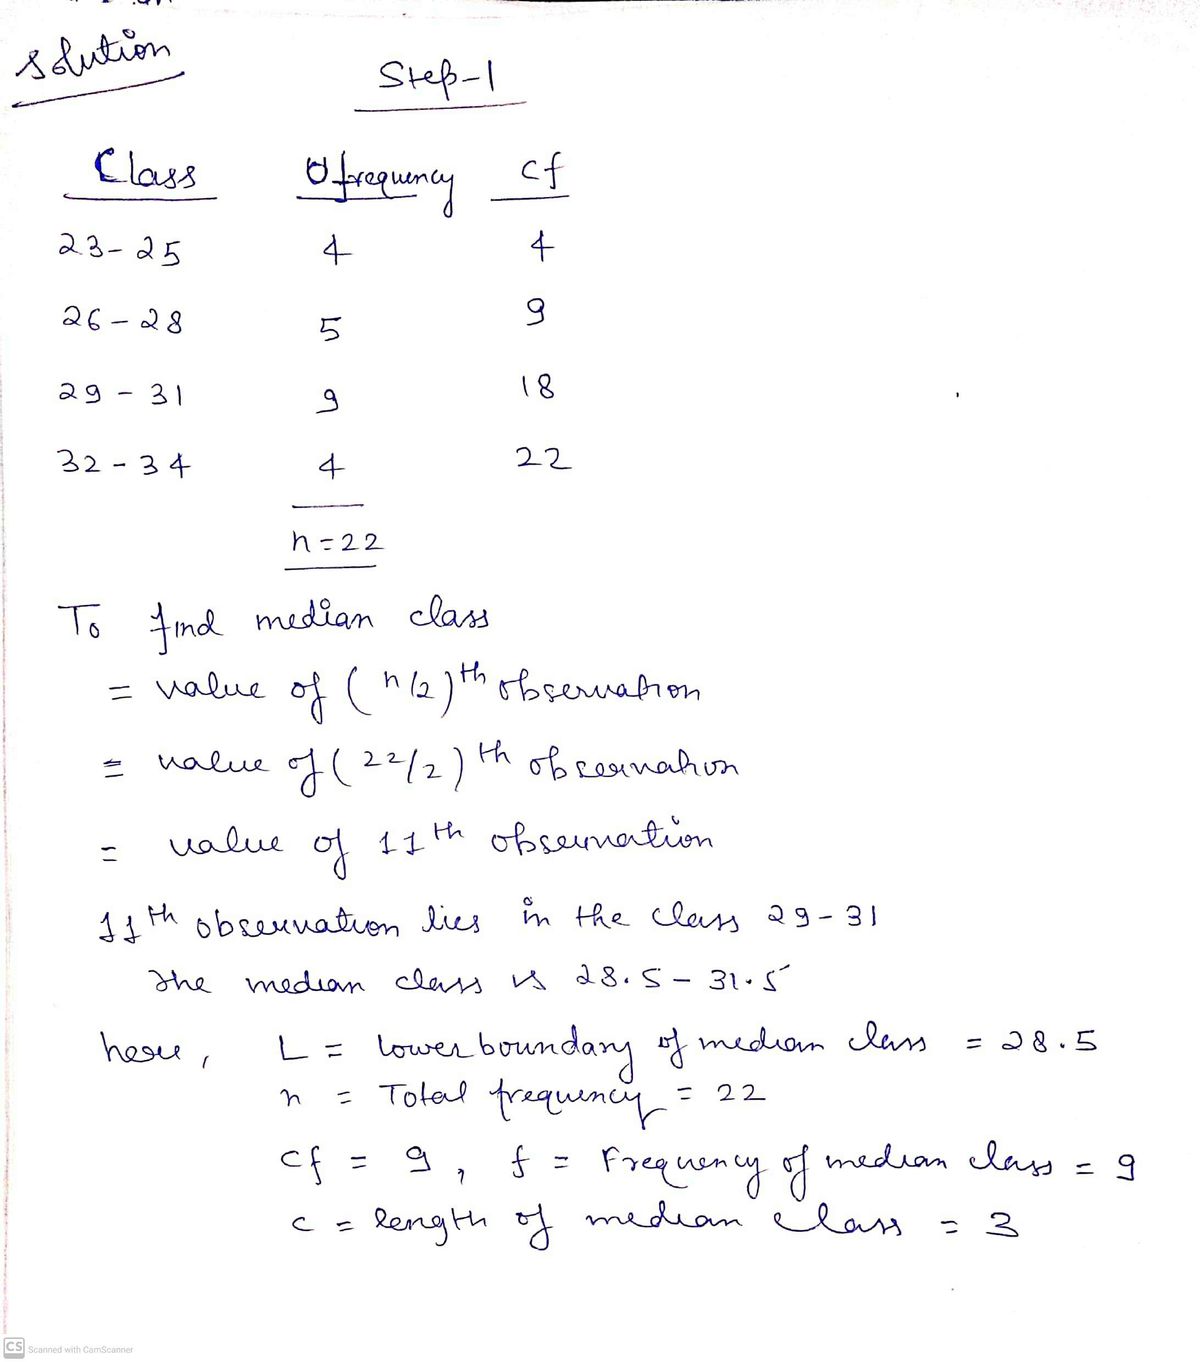 Solution
Step-1
Class frequency cf
23-25 4 4
26-28 5 9
29-31 9 18
32-34 4 22
n=22
To find median class
= value of (n/2)th observation
= value of (22/2)th observation
= value of 11th observation
11th observation lies in the class 29-31
The median class is 28.5-31.5
here, L = lower boundary of median class = 28.5
n = Total frequency = 22
cf = 9, f = Frequency of median class = 9
c = length of median class = 3
CS Scanned with CamScanner